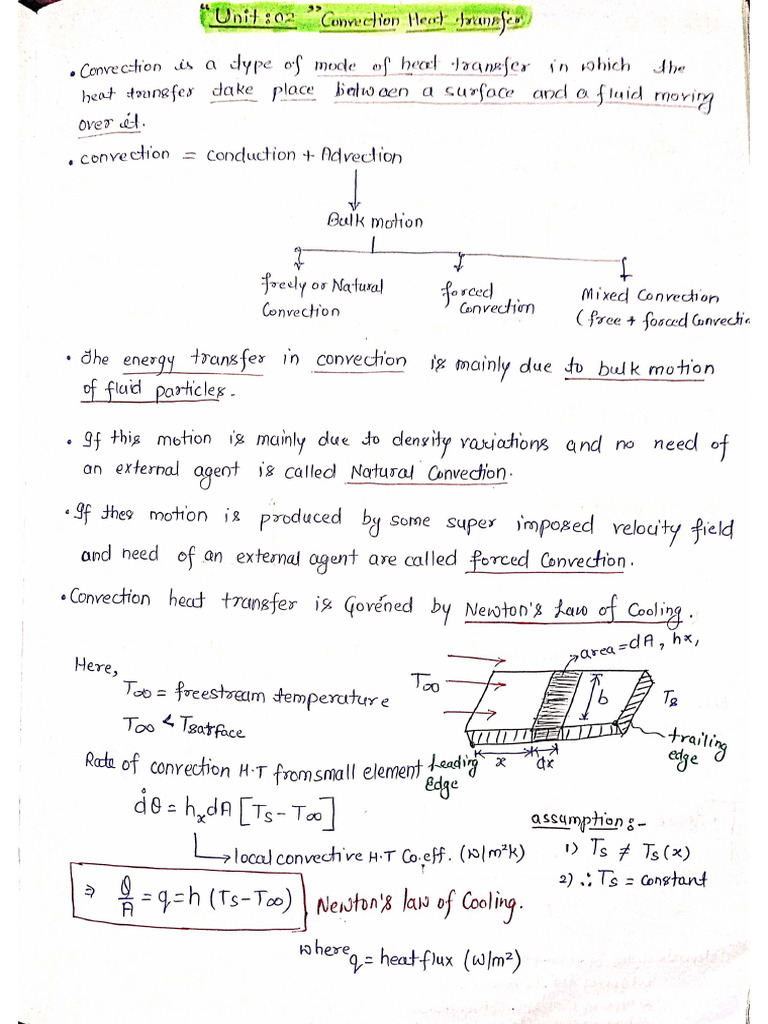 "Unit:02" Convection Heat transfer
• Convection is a type of mode of heat transfer in which the
heat transfer take place between a surface and a fluid moving
over it.
• convection = conduction + Advection
Bulk motion
freely or Natural
Convection
forced
Convection
Mixed Convection
(free + forced Convectio
• The energy transfer in convection is mainly due to bulk motion
of fluid particles.
• If this motion is mainly due to density variations and no need of
an external agent is called Natural Convection.
• If thes motion is produced by some super imposed velocity field
and need of an external agent are called forced Convection.
• Convection heat transfer is Govéned by Newton's Law of Cooling.
Here,
T∞ = freestream temperature
T∞ < Tsatface
area = dA, hx,
T∞
b
Ts
x
dx
trailing
edge
Leading
Edge
Rate of convection H.T from small element
dQ̇ = hxdA[Ts-T∞]
→ local convective H.T Co.eff. (W/m²k)
assumption:-
1) Ts ≠ Ts(x)
2) ∴ Ts = constant
⇒ Q/A = q = h (Ts-T∞)
Newton's law of Cooling.
where q = heat flux (W/m²)